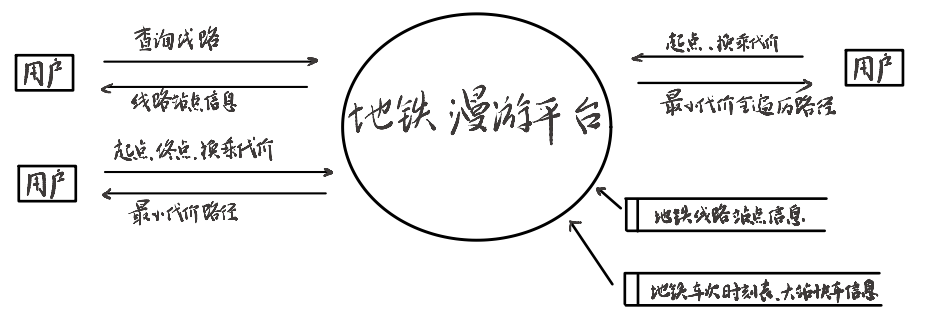 查询线路
用户
线路站点信息
起点、终点、换乘代价
用户
最小代价路径
地铁漫游平台
起点、换乘代价
用户
最小代价全遍历路径
地铁线路站点信息
地铁车次时刻表、大站快车信息